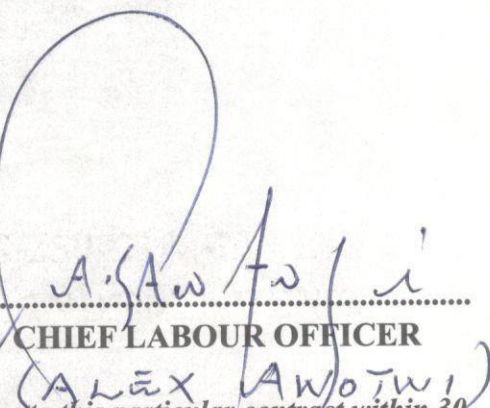 CHIEF LABOUR OFFICER
(ALEX AWOTWI)
to this particular contract within 30